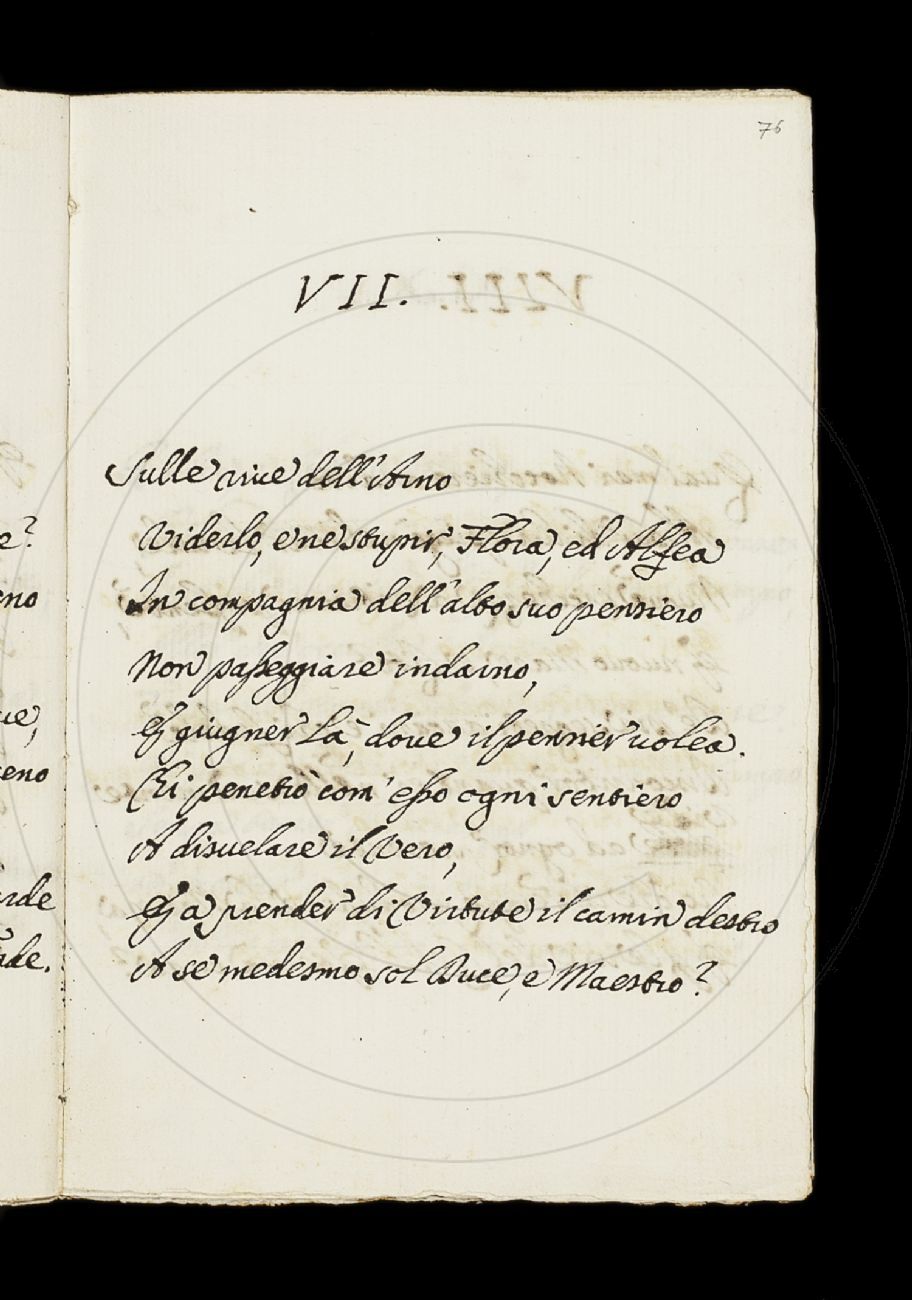 76
VII.
Sulle rive dell'Arno
Viderlo, e ne stupir, Flora, ed Alfea
In compagnia dell'alto suo pensiero
Non passeggiare indarno,
E giugner là, dove il pensier volea.
Chi penetrò com' esso ogni sentiero
A disvelare il Vero,
E a prender di Virtute il camin destro
A se medesmo sol Duce, e Maestro?
e?
eno
ue,
eno
rde
rde.